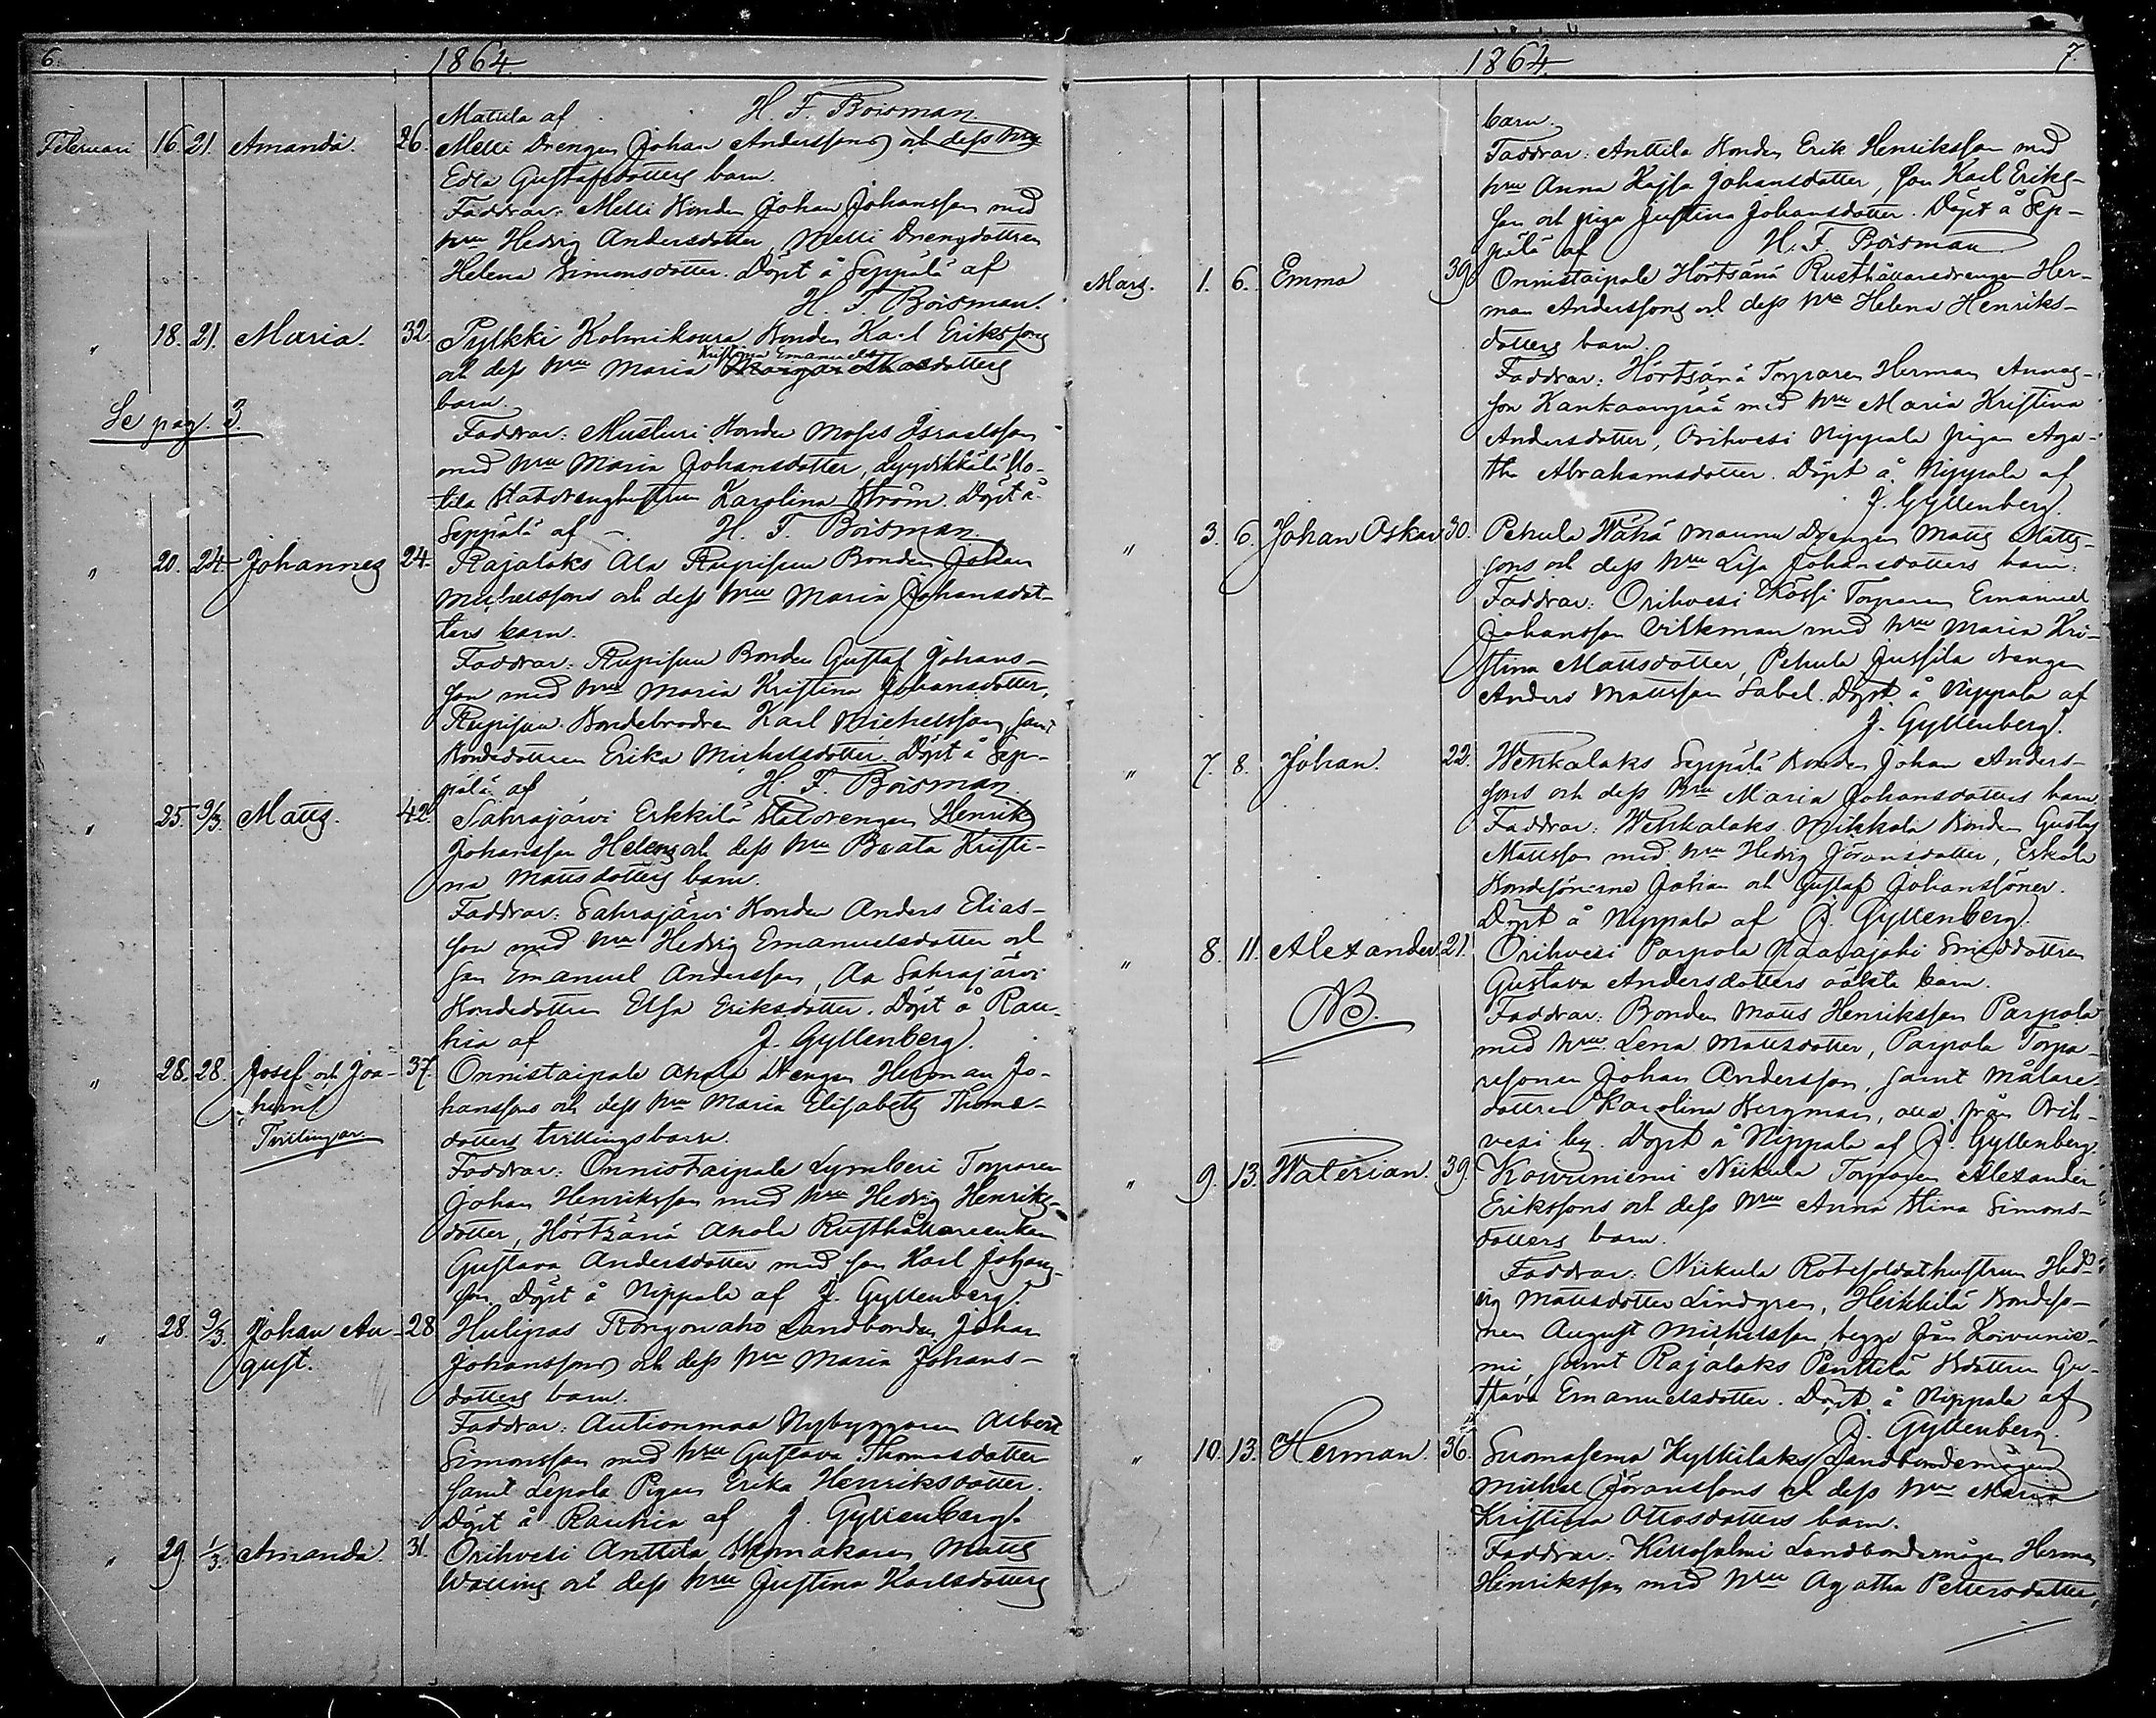 6.
1864.
Mattila af H. F. Boisman
Februari 16. 21. Amanda. 26. Melli Drengen Johan Anderssons och dess hru
Edla Gustafsdotters barn.
Faddrar: Melli Bonden Johan Johansson med
hru Hedvig Andersdotter, Melli Drengdottren
Helena Simonsdotter. Döpt å Seppälä af
H. F. Boisman.
" 18. 21. Maria. 32. Pylkki Kolmikoura Bonden Karl Erikssons
och dess hru Maria Kristina Emanuels Margarethasdotters
barn.
Se pag. 3.
Faddrar: Musturi Bonden Moses Israelsson
med hru Maria Johansdotter, Lyydikkälä Uo-
tila Statdrenghustrun Karolina Ström. Döpt å
Seppälä af H. F. Boisman.
" 20. 24. Johannes 24. Rajalaks Ala Rupisuu Bonden Johan
Michelssons och dess hru Maria Johansdot-
ters barn.
Faddrar: Rupisuu Bonden Gustaf Johans-
son med hru Maria Kristina Johansdotter,
Rupisuu Bondebrodren Karl Michelsson, samt
Bondedottren Erika Michelsdotter. Döpt å Sep-
pälä af H. F. Boisman.
" 25. 9/3. Matts. 42. Sahrajärvi Erkkilä Statdrengen Henrik
Johansson Helens och dess hru Beata Kristi-
na Mattsdotters barn.
Faddrar: Sahrajärvi Bonden Anders Elias-
son med hru Hedvig Emanuelsdotter och
son Emanuel Andersson, Aa Sahrajärvi
Bondedottren Elsa Eriksdotter. Döpt å Rau-
hia af J. Gyllenberg.
" 28. 28. Josef och Joa- 37. Onnistaipale Ahola Drengen Herman Jo-
kim hanssons och dess hru Maria Elisabeth Thomæ-
Tvillingar. dotters tvillingsbarn.
Faddrar: Onnistaipale Lymberi Torparen
Johan Henriksson med hru Hedvig Henriks-
dotter, Hörtsänä Ahola Rusthållareenkan
Gustava Andersdotter med son Karl Johans-
son. Döpt å Nippala af J. Gyllenberg.
" 28. 9/3. Johan Au- 28 Hulipas Rongonaho Landbonden Johan
gust. Johanssons och dess hru Maria Johans-
dotters barn.
Faddrar: Autionmaa Nybyggaren Albert
Simonsson med hru Gustava Thomasdotter
samt Lepola Pigan Erika Henriksdotter.
Döpt å Rauhia af J. Gyllenberg.
" 29 1/3. Amanda. 31. Orihvesi Anttila Skomakaren Matts
Walling och dess hru Justina Karlsdotters
1864.
7.
barn.
Faddrar: Anttila Bonden Erik Henriksson med
hru Anna Kajsa Johansdotter, son Karl Eriks-
son och piga Justina Johansdotter. Döpt å Sep-
pälä af H. F. Boisman
Mars. 1. 6. Emma 39. Onnistaipale Hörtsänä Rusthållaredrengen Her-
man Anderssons och dess hru Helena Henriks-
dotters barn.
Faddrar: Hörtsänä Torparen Herman Annas-
son Kankaanpää med hru Maria Kristina
Andersdotter, Orihvesi Nippala pigan Aga-
tha Abrahamsdotter. Döpt å Nippala af
J. Gyllenberg.
" 3. 6. Johan Oskar 30. Pehula Wähä Maunu Drengen Matts Matts-
sons och dess hru Lisa Johansdotters barn.
Faddrar: Orihvesi Kossi Torparen Emanuel
Johansson Vilkman med hru Maria Kri-
stina Mattsdotter, Pehula Jussila drengen
Anders Mattsson Sabel. Döpt å Nippala af
J. Gyllenberg.
" 7. 8. Johan. 22. Wehkalaks Seppälä Bonden Johan Anders-
sons och dess hru Maria Johansdotters barn.
Faddrar: Wehkalaks Mikkola Bonden Gustaf
Mattsson med hru Hedvig Jöransdotter, Eskola
Bondesönerne Johan och Gustaf Johanssöner.
Döpt å Nippala af J. Gyllenberg.
" 8. 11. Alexander 21. Orihvesi Parpola Naarajoki Smeddottren
Gustava Andersdotters oäkta barn.
NB. Faddrar: Bonden Matts Henriksson Parpola
med hru Lena Mattsdotter, Parpola Torpa-
resonen Johan Andersson, samt målare-
dottren Karolina Bergman, alla från Orih-
vesi by. Döpt å Nippala af J. Gyllenberg.
" 9. 13. Walerian. 39. Koivuniemi Niikula Torparen Alexander
Erikssons och dess hru Anna Stina Simons-
dotters barn.
Faddrar: Niikula Rotesoldathustrun Hed-
vig Mattsdotter Lindgren, Heikkilä Bondeso-
nen August Michelsson, begge från Koivunie-
mi, samt Rajalaks Penttilä Bdottren Gu-
stava Emanuelsdotter. Döpt å Nippala af
J. Gyllenberg.
" 10. 13. Herman. 36. Suomasema Kyllilaks Landbondemågen
Michel Jöranssons och dess hru Maria
Kristina Ottosdotters barn.
Faddrar: Killosalmi Landbondemågen Herman
Henriksson med hru Agatha Pettersdotter,